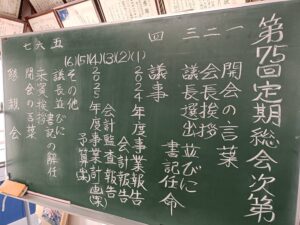 第75回定期総会次第
一 開会の言葉
二 会長挨拶
三 議長選出並びに書記任命
四 議事
(1) 2024年度事業報告
(2) 会計報告
(3) 会計監査報告
(4) 2025年度事業計画(案)
(5) 予算(案)
(6) その他
五 議長並びに書記の解任
六 来賓挨拶
七 閉会の言葉
懇親会